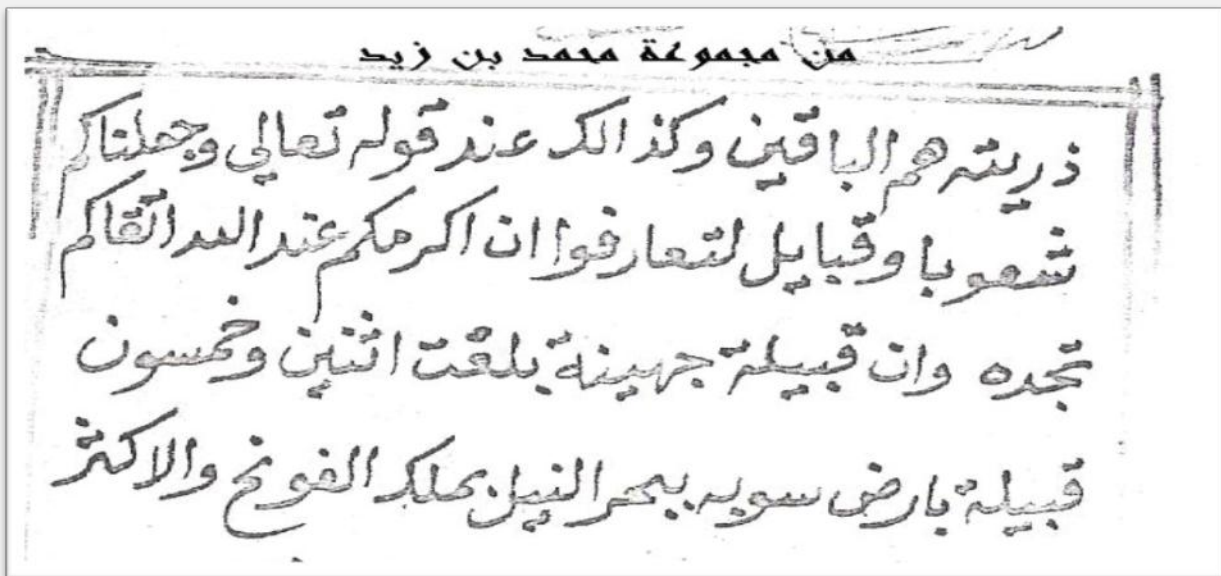 من مجموعة محمد بن زيد
ذريته هم الباقين وكذالك عند قوله تعالي وجعلناكم
شعوبا وقبايل لتعارفوا ان اكرمكم عند الله اتقاكم
تجده وان قبيلة جهينة بلغت اثنين وخمسون
قبيلة بارض سوبه ببحر النيل بملك الفونج والاكثر